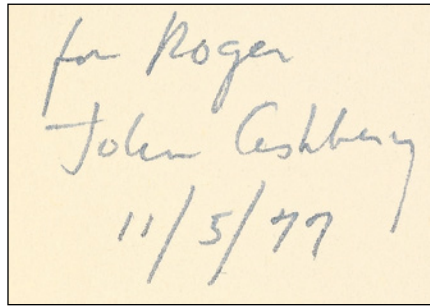 for Roger
John Ashbery
11/5/77